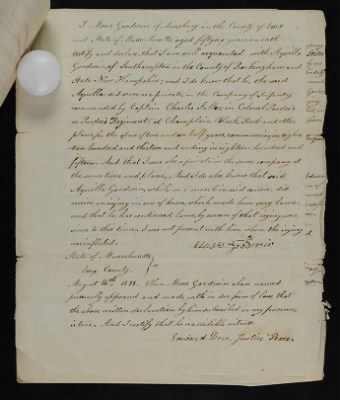 I Moses Goodwin of Amesbury in the County of Essex
and State of Massachusetts aged fifty years on oath
testify and declare that I am well acquainted with Aquilla
Goodwin of Southampton in the County of Rockingham and
State New Hampshire; and I do know that he, the said
Aquilla did serve as private, in the Company of Infantry
commanded by Captain Charles in Colonel
Regiment, at Champlain, Black Rock and other
places for the space of two and an half years commencing in eighteen
hundred and thirteen and ending in eighteen hundred and
fifteen. And that I was also a private in the same company at
the same time and places. And I do also know that said
Aquilla Goodwin, while on a march in said service, did
receive an injury in one of knees, which made him very lame,
and that he has continued lame, by reason of that injury, ever
since to this time; I was present with him when the injury
was inflicted.
Moses Goodwin
State of Massachusetts
Essex County.
August 14th 1838. Then Moses Goodwin above named
personally appeared and made oath in due form of law, that
the above written declaration by him subscribed in my presence
is true. And I certify that he is a credible witness.
Edward Dorr, Justice Peace